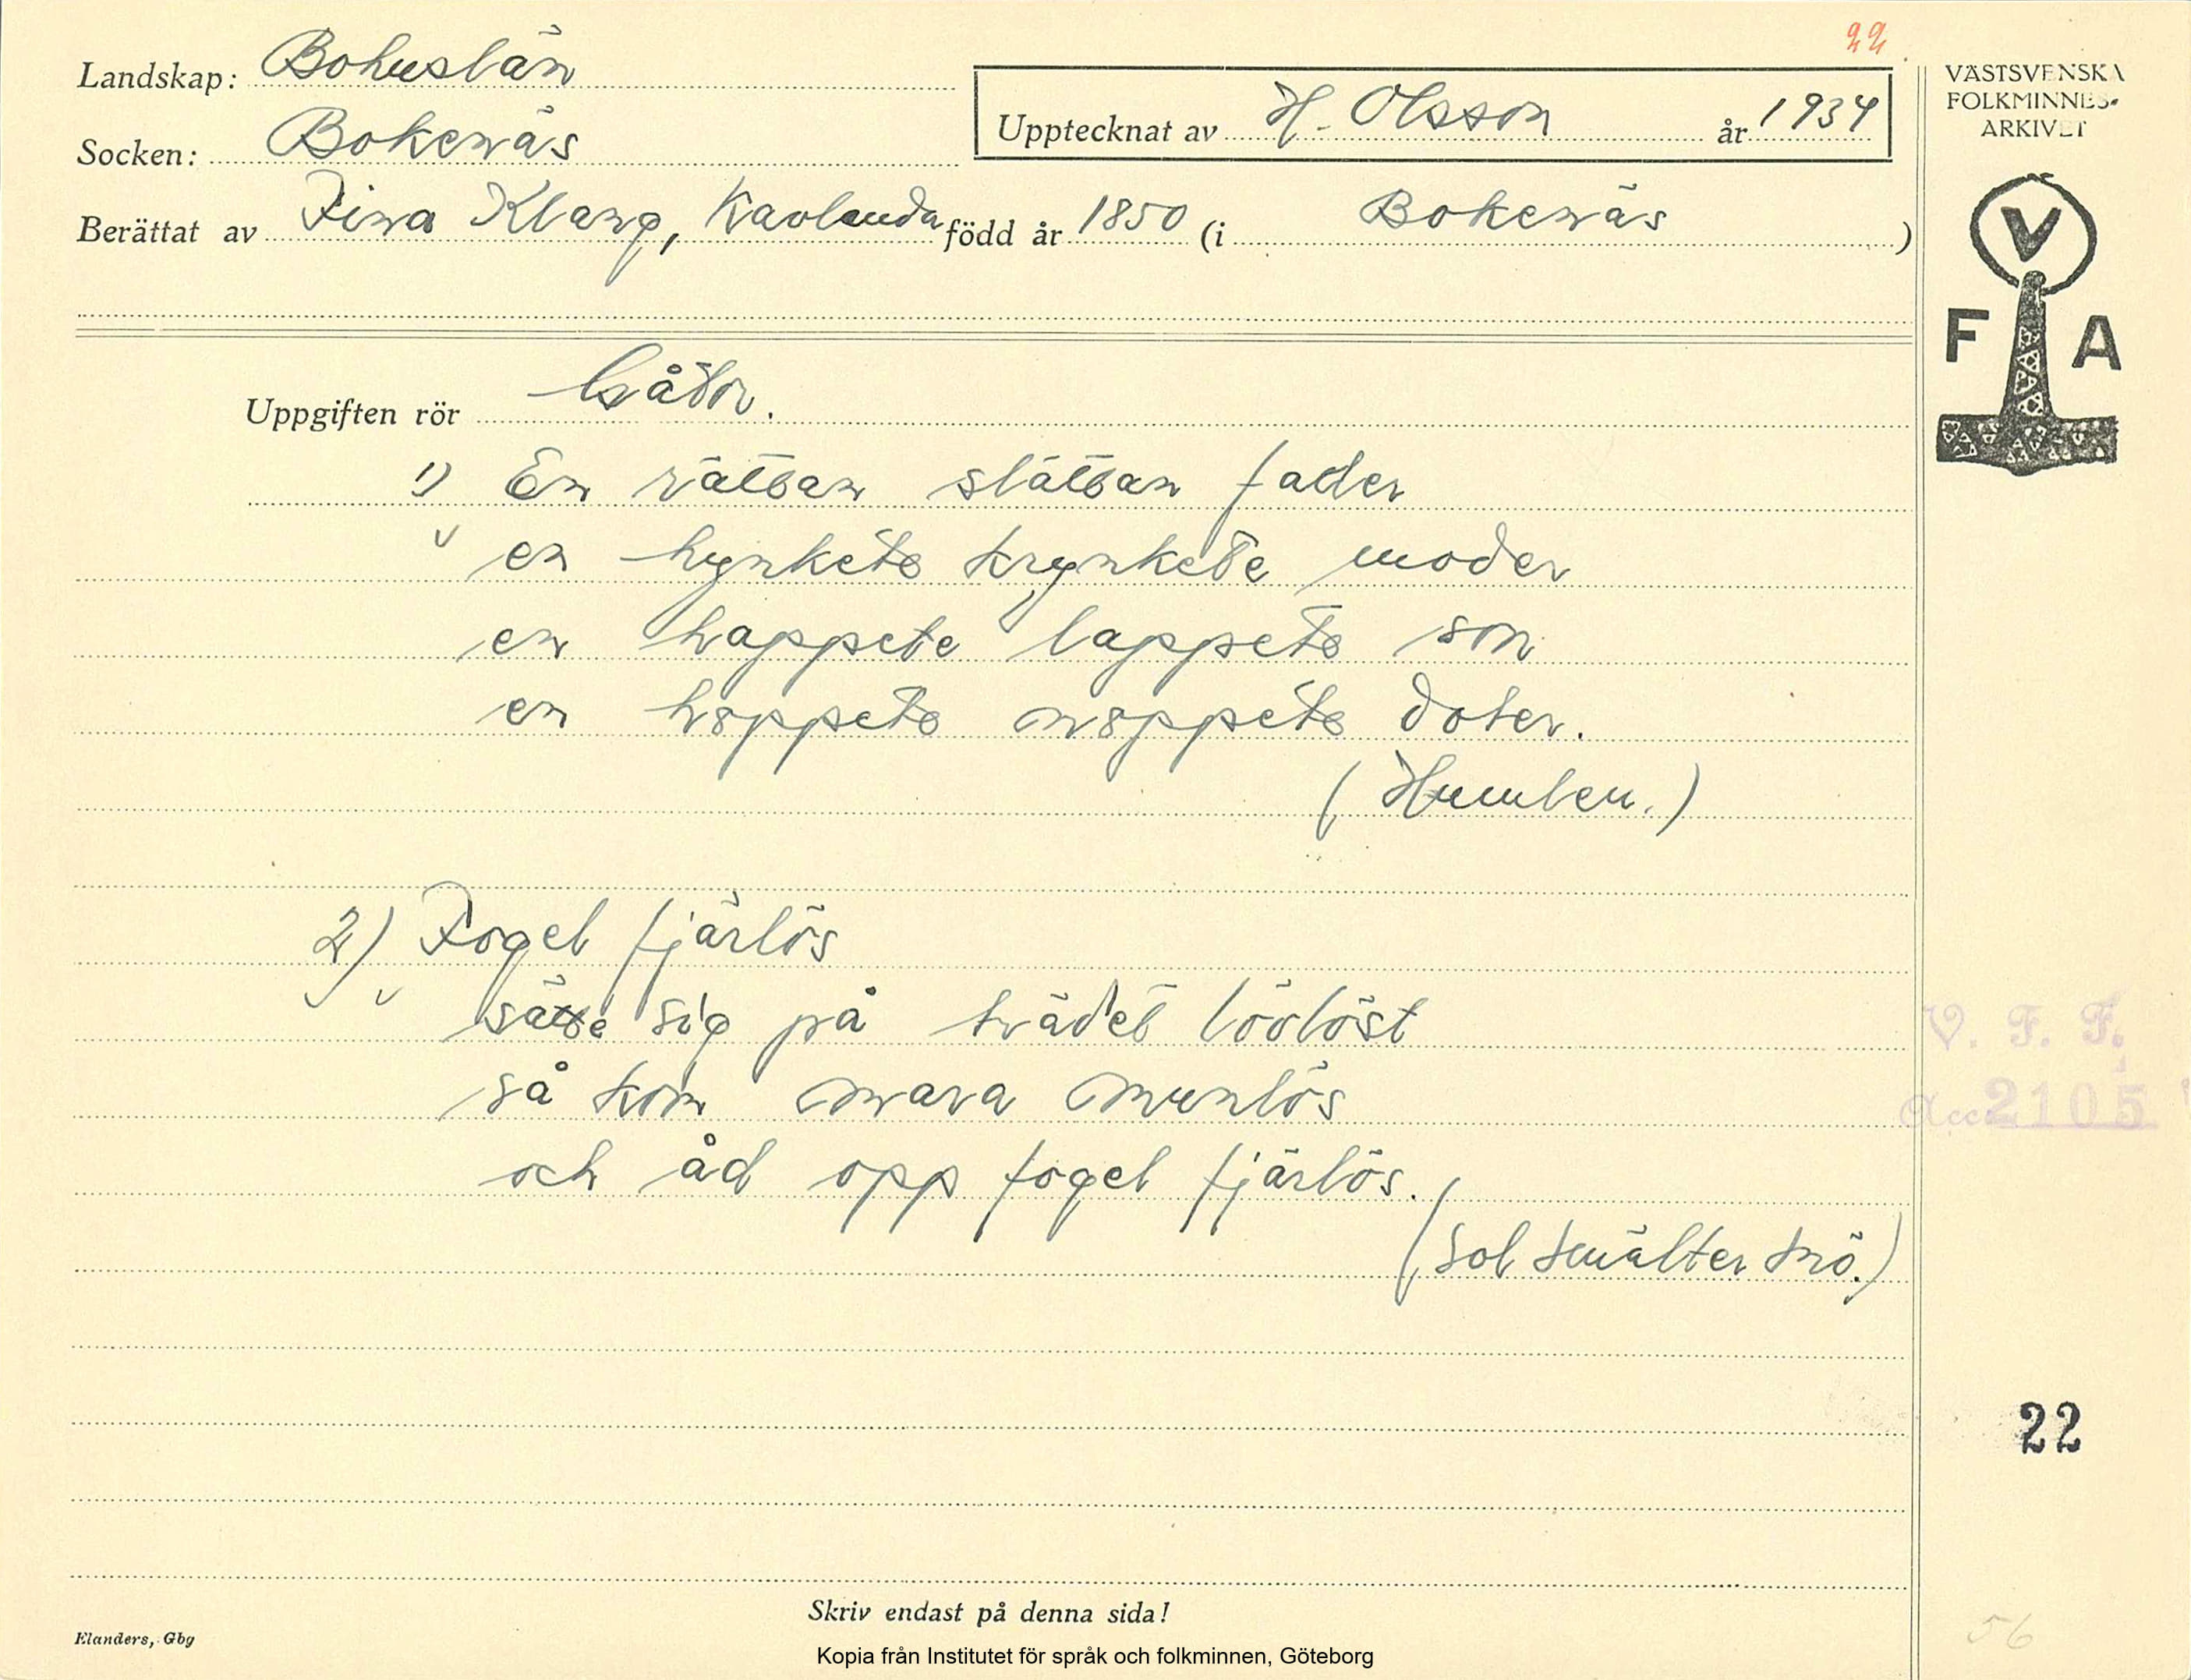 22
Landskap: Bohuslän
Socken: Bokenäs
Upptecknat av H. Olsson år 1934
Berättat av Fina Klang, Kavlanda född år 1850 (i Bokenäs)
VÄSTSVENSKA
FOLKMINNES-
ARKIVET
V
F A
Uppgiften rör Gåtor.
1) En rättan slättan fader
en hynkete krynkete moder
en happete lappete son
en hoppete noppete doter.
(Humlen.)
2) Fogel fjärlös
sätte sig på trädet lövlöst
så kom mara munlös
och åd opp fogel fjärlös.
(Sol smälter snö.)
V. F. F.
Acc. 2105
22
Skriv endast på denna sida!
Elanders, Gbg
56
Kopia från Institutet för språk och folkminnen, Göteborg